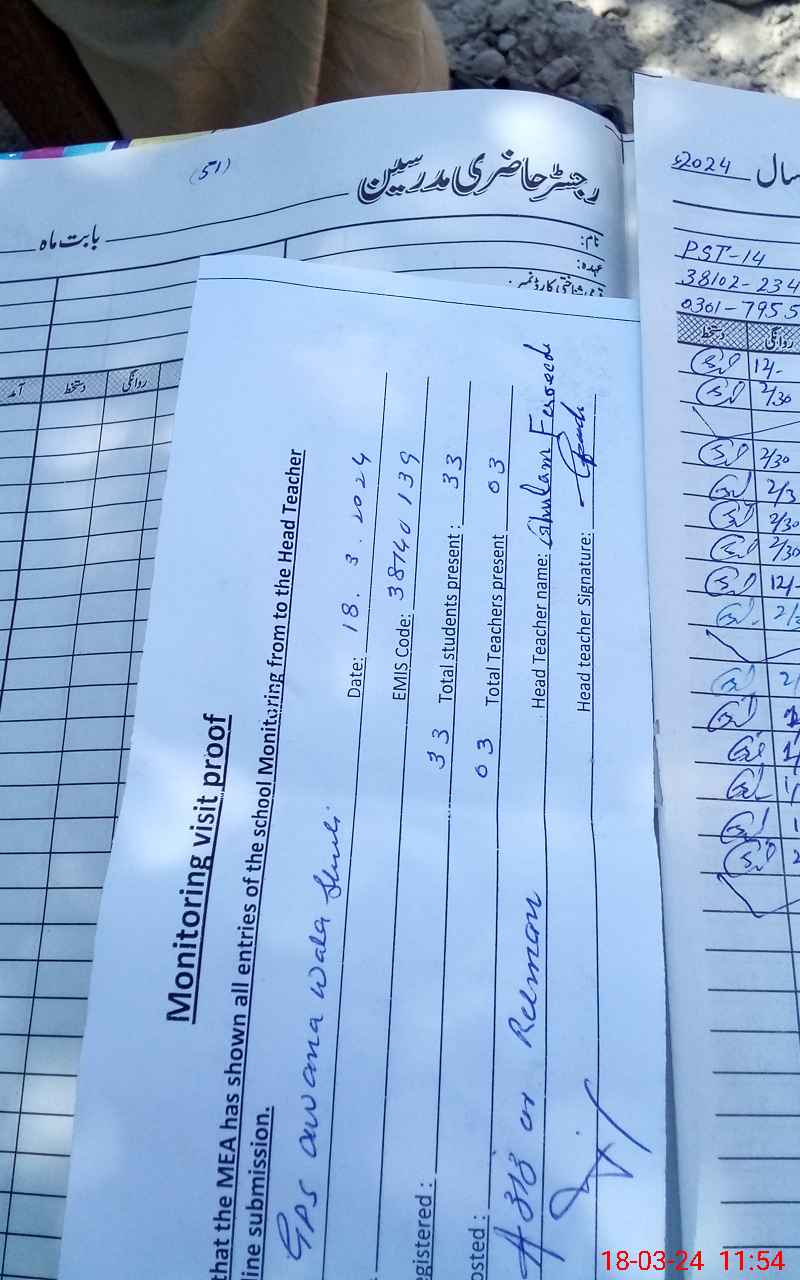 (51)
رجسٹر حاضری مدرسین
بابت ماہ
نام:
عہدہ:
قومی شناختی کارڈ نمبر:
آمد دستخط روانگی
سال 2024ء
PST-14
38102-234
0301-7955
دستخط روانگی
12-
2/30
2/30
2/3
2/30
2/30
12-
Monitoring visit proof
that the MEA has shown all entries of the school Monitoring from to the Head Teacher
line submission.
GPS awana wala Date: 18.3.2024
EMIS Code: 38740139
egistered: 33 Total students present: 33
osted: 03 Total Teachers present 03
Head Teacher name: Ghulam Fareed
Head teacher Signature:
18-03-24 11:54